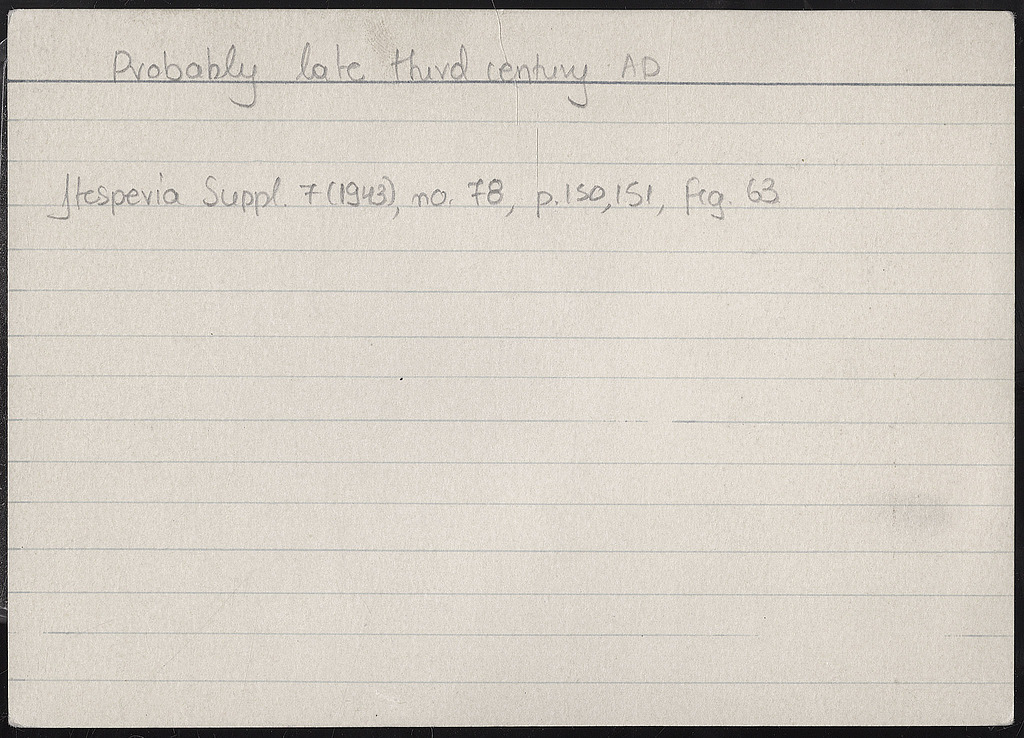 Probably late third century AD
Hesperia Suppl. 7 (1943), no. 78, p. 150, 151, fig. 63